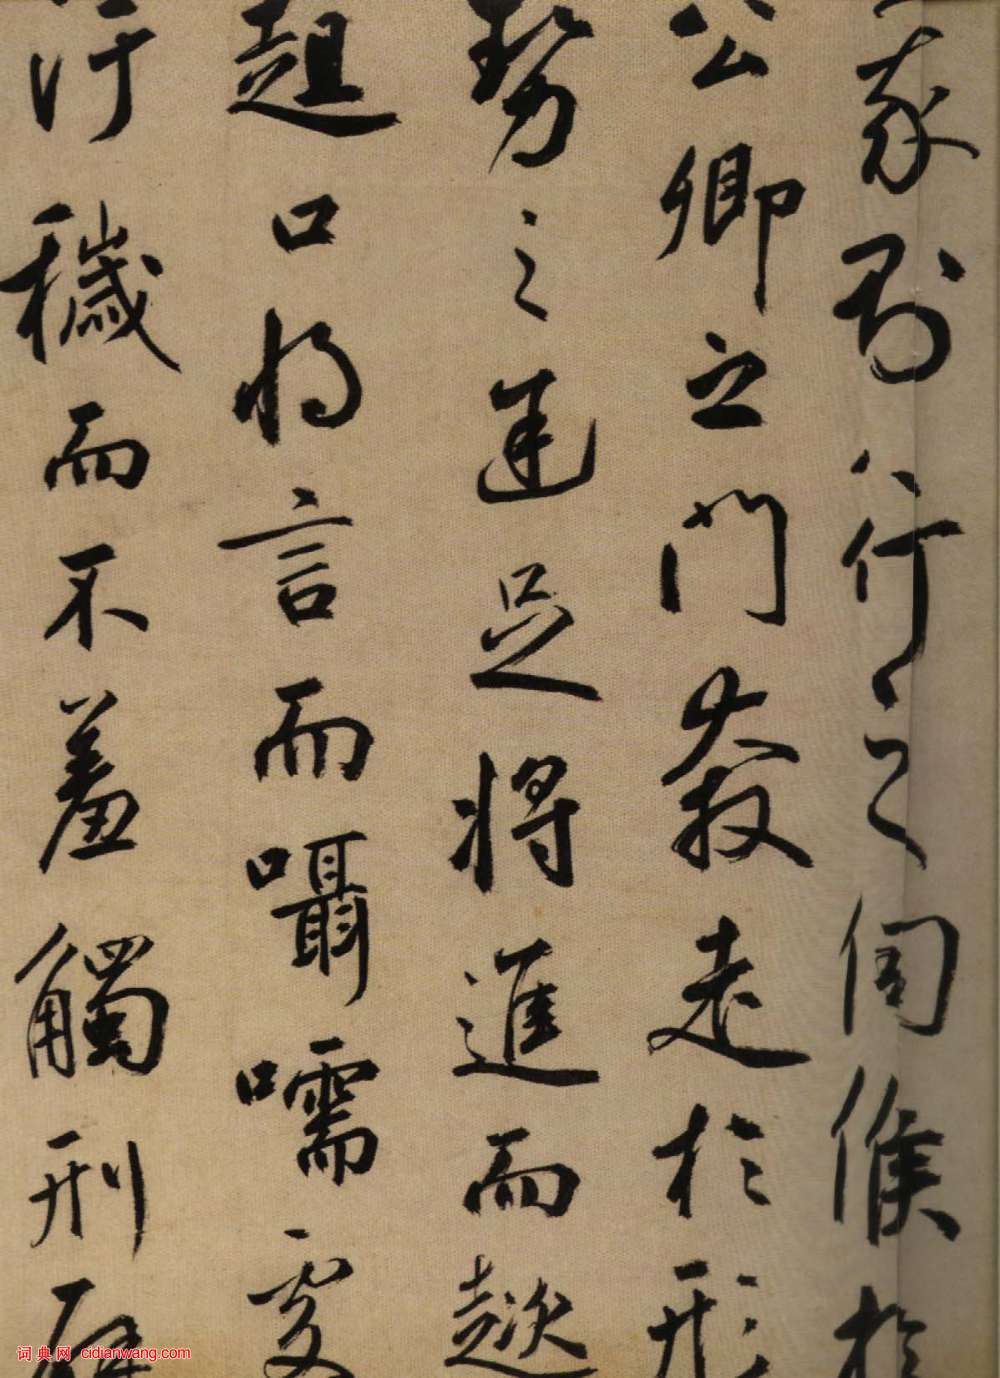 我則行之伺候於
公卿之門奔走於形
勢之途足將進而趑
趄口將言而囁嚅處
汙穢而不羞觸刑辟
词典网 cidianwang.com